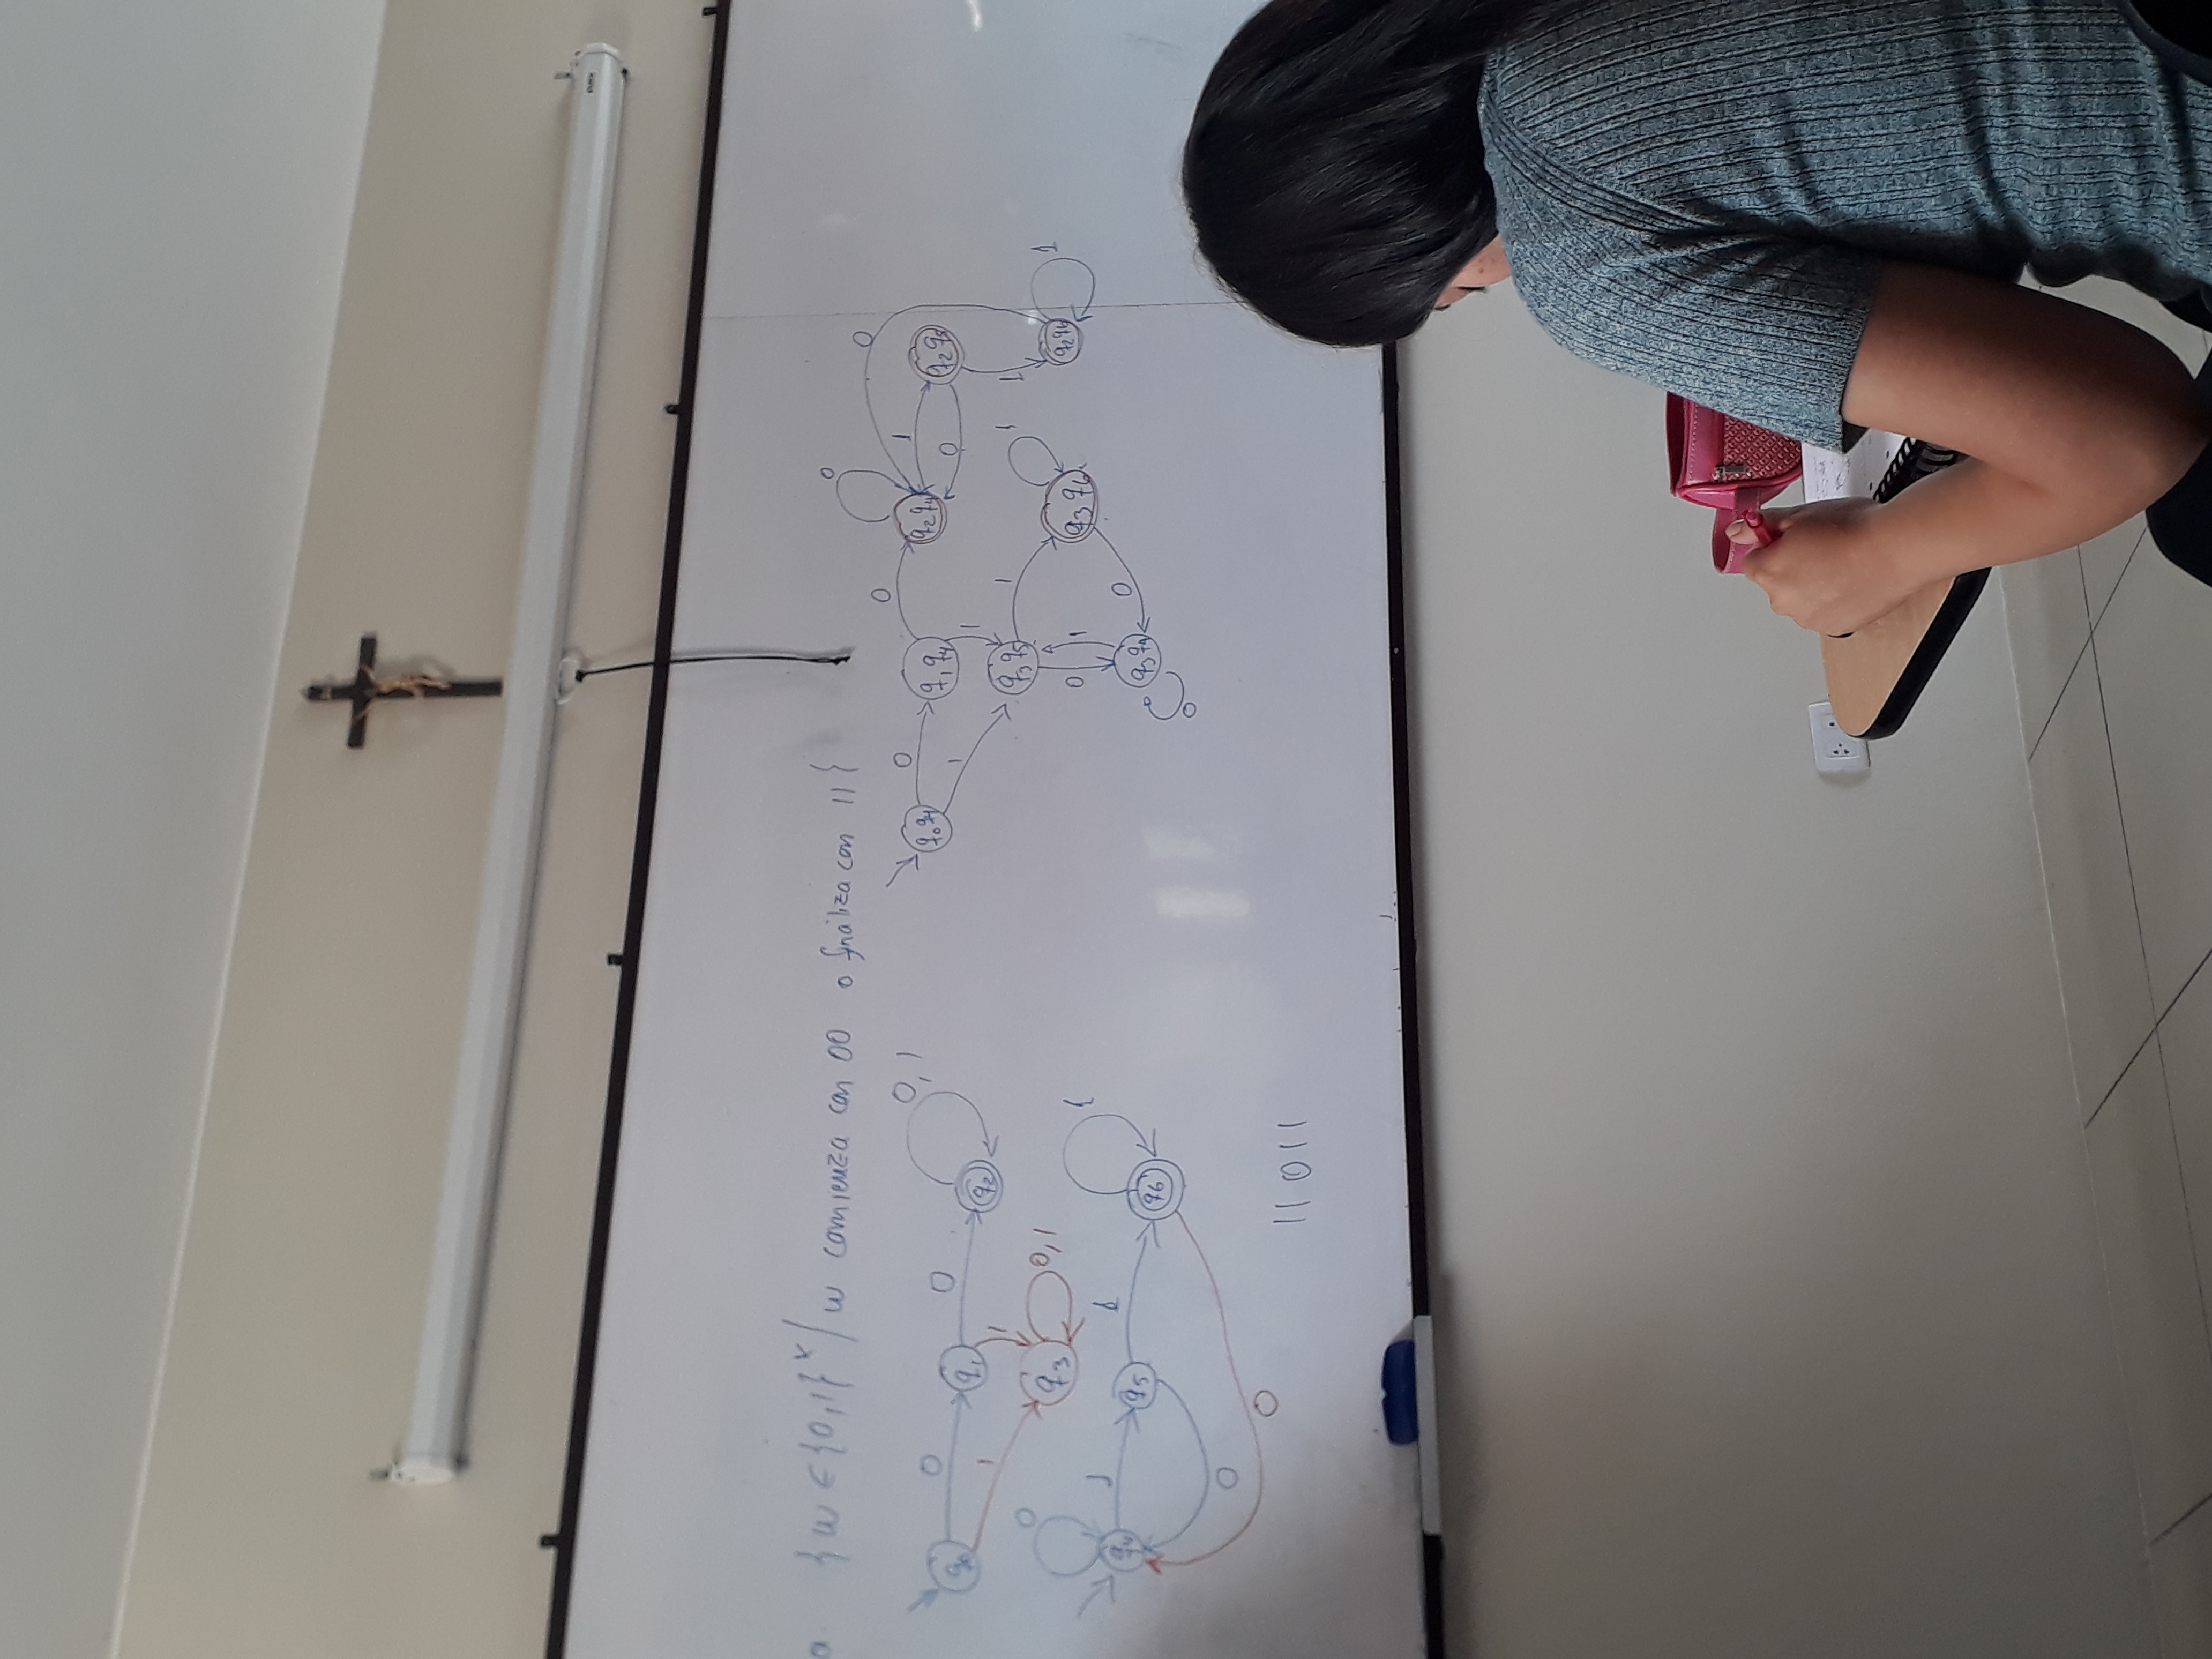 a. {w ∈ {0,1}* / w comienza con 00 o finaliza con 11}
q0 0 q1 0 q2 0,1
1 1
q3 0,1
0
q4 1 q5 1 q6 1
0
0
11011
q0q4 0 q1q4 0 q2q4 0 1 0 q2q5 0
1 1
q3q5 1 q3q6 1 1 q2q6 1
0 1 0
q3q4
0